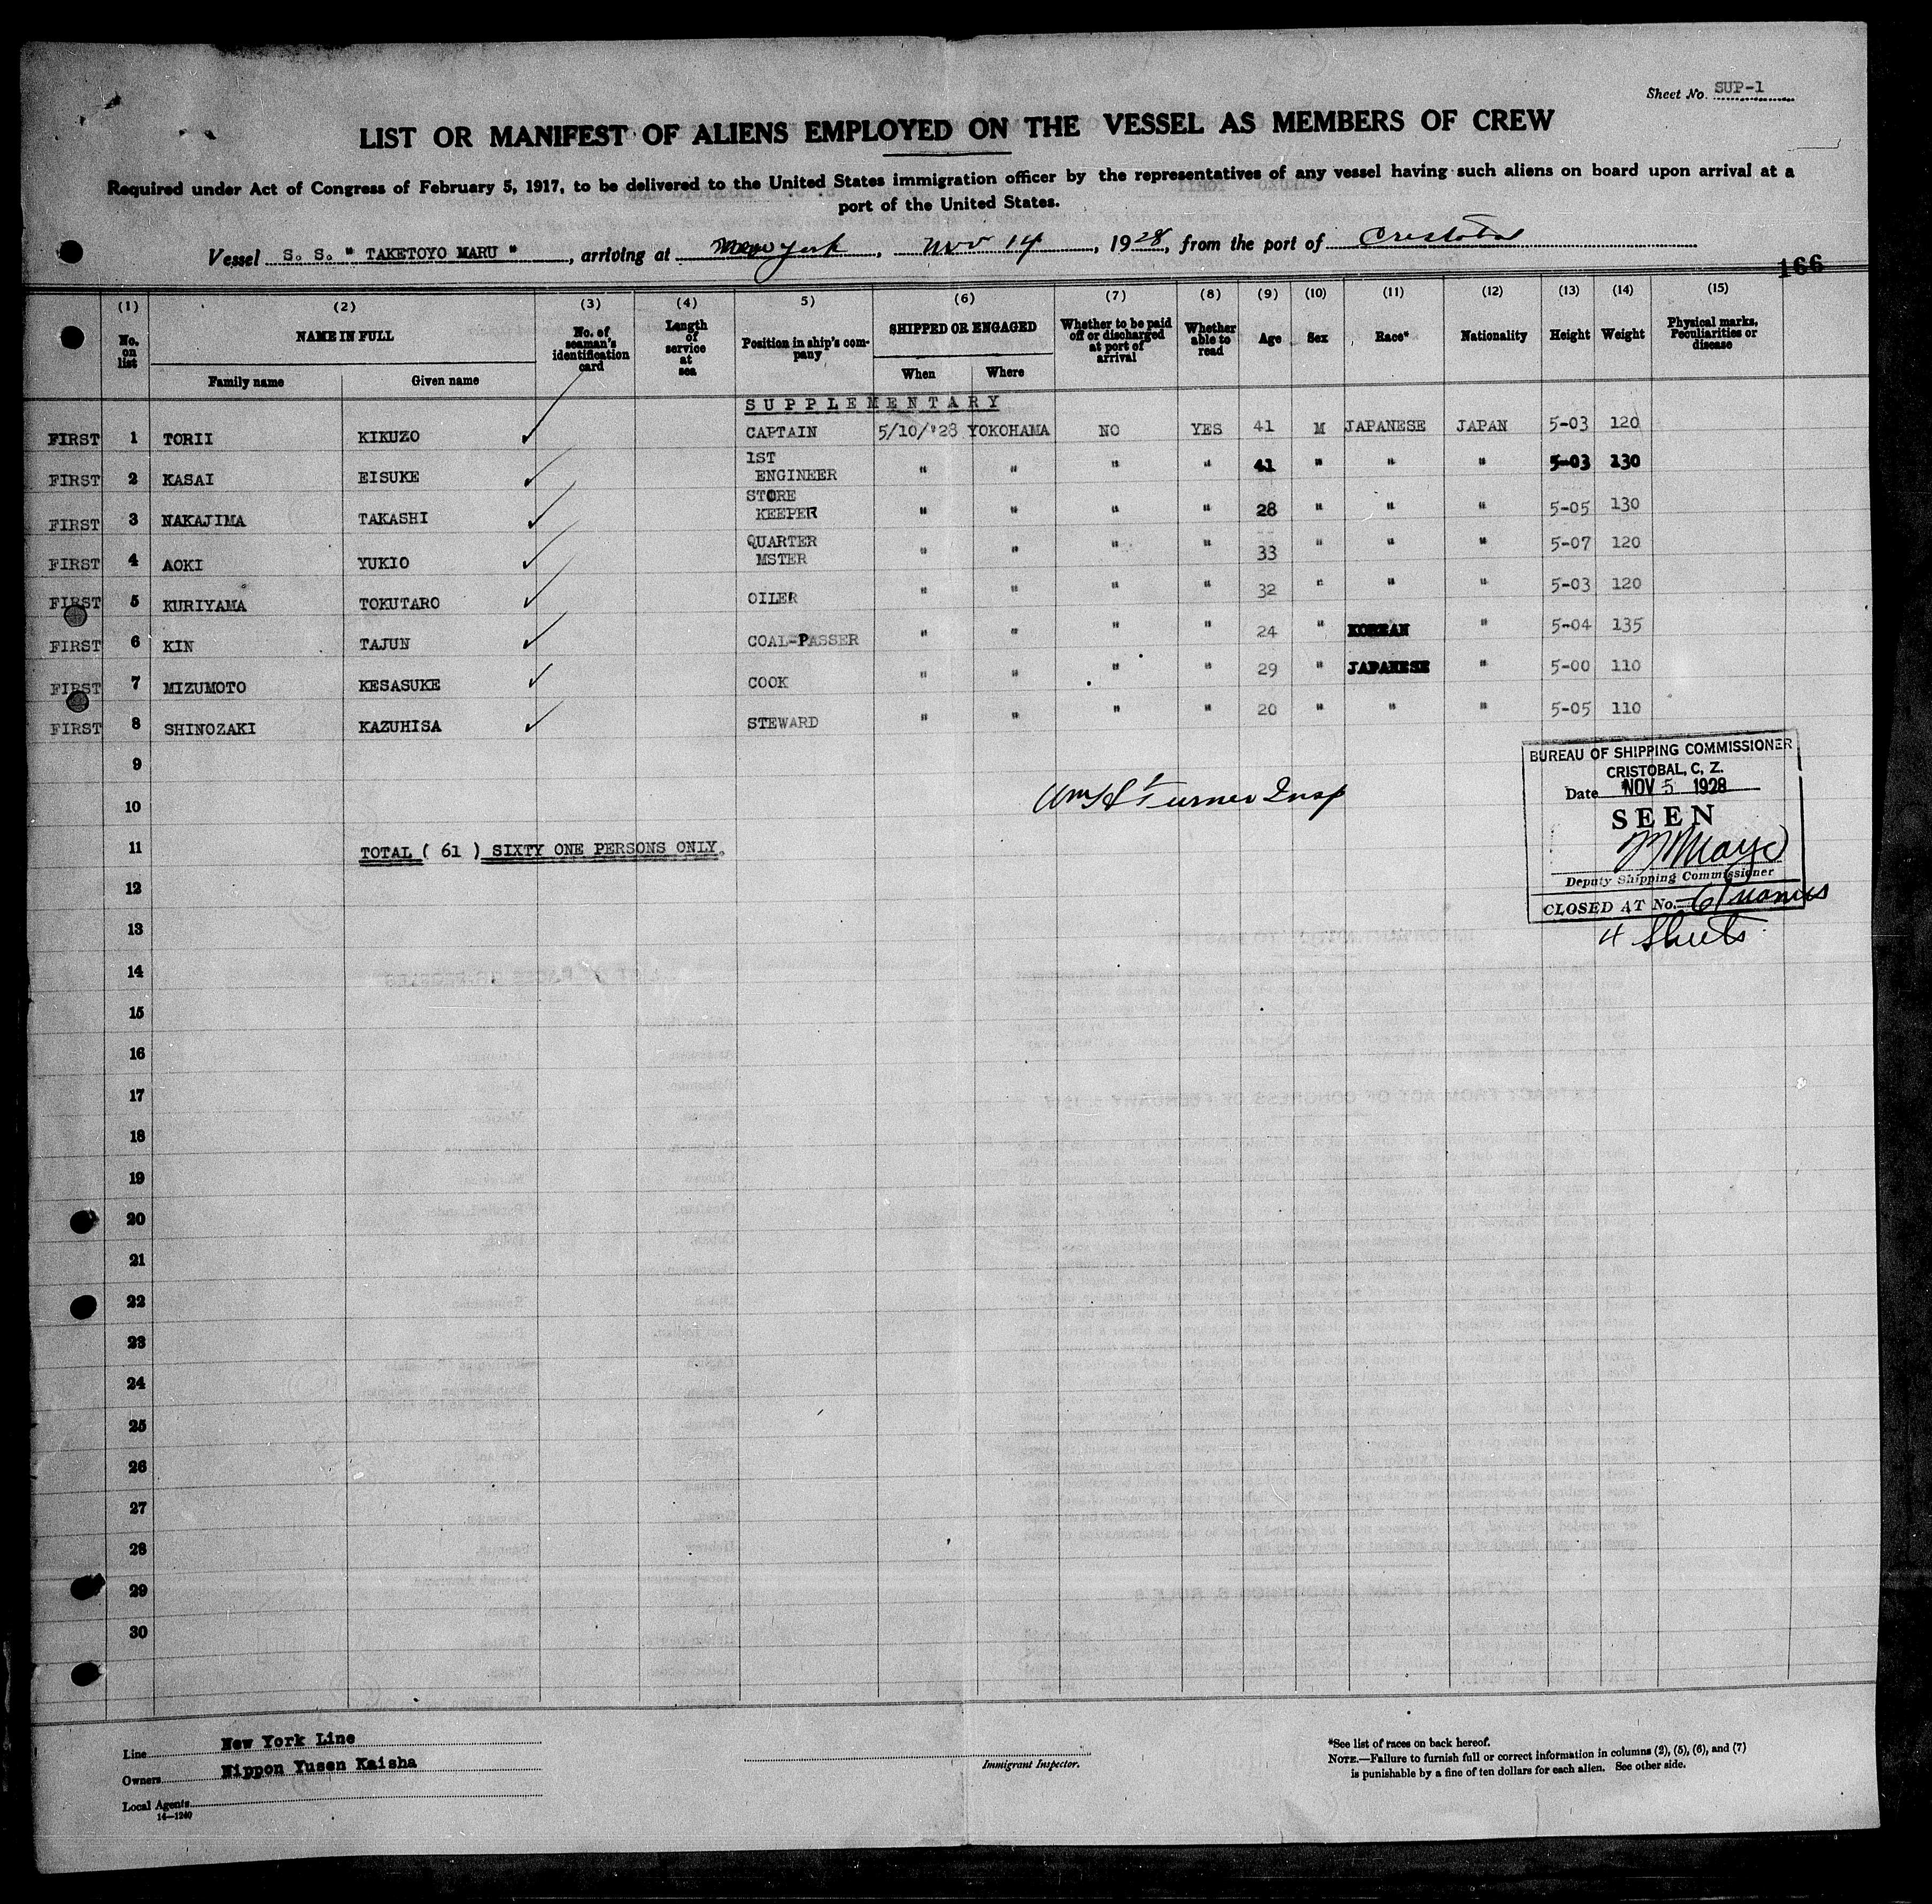 Sheet No. SUP-1
LIST OR MANIFEST OF ALIENS EMPLOYED ON THE VESSEL AS MEMBERS OF CREW
Required under Act of Congress of February 5, 1917, to be delivered to the United States immigration officer by the representatives of any vessel having such aliens on board upon arrival at a
port of the United States.
Vessel S. S. " TAKETOYO MARU ", arriving at New York, Nov 14, 1928, from the port of Cristobal
166
(1) (2) (3) (4) 5) (6) (7) (8) (9) (10) (11) (12) (13) (14) (15)
No. on list NAME IN FULL Family name Given name No. of seaman's identification card Length of service at sea Position in ship's company SHIPPED OR ENGAGED When Where Whether to be paid off or discharged at port of arrival Whether able to read Age Sex Race* Nationality Height Weight Physical marks, Peculiarities or disease
SUPPLEMENTARY
FIRST 1 TORII KIKUZO CAPTAIN 5/10/'28 YOKOHAMA NO YES 41 M JAPANESE JAPAN 5-03 120
FIRST 2 KASAI EISUKE 1ST ENGINEER " " " " 41 " " " 5-03 130
FIRST 3 NAKAJIMA TAKASHI STORE KEEPER " " " " 28 " " " 5-05 130
FIRST 4 AOKI YUKIO QUARTER MSTER " " " " 33 " " " 5-07 120
FIRST 5 KURIYAMA TOKUTARO OILER " " " " 32 " " " 5-03 120
FIRST 6 KIN TAJUN COAL-PASSER " " " " 24 " KOREAN " 5-04 135
FIRST 7 MIZUMOTO KESASUKE COOK " " " " 29 " JAPANESE " 5-00 110
FIRST 8 SHINOZAKI KAZUHISA STEWARD " " " " 20 " " " 5-05 110
9
10 Turner Insp
11 TOTAL ( 61 ) SIXTY ONE PERSONS ONLY.
BUREAU OF SHIPPING COMMISSIONER
CRISTOBAL, C. Z.
Date NOV 5 1928
SEEN
Deputy Shipping Commissioner
CLOSED AT No. 61 names
4 Sheets
12
13
14
15
16
17
18
19
20
21
22
23
24
25
26
27
28
29
30
Line New York Line
Owners Nippon Yusen Kaisha
Local Agents
14—1240
Immigrant Inspector.
*See list of races on back hereof.
NOTE.—Failure to furnish full or correct information in columns (2), (5), (6), and (7)
is punishable by a fine of ten dollars for each alien. See other side.